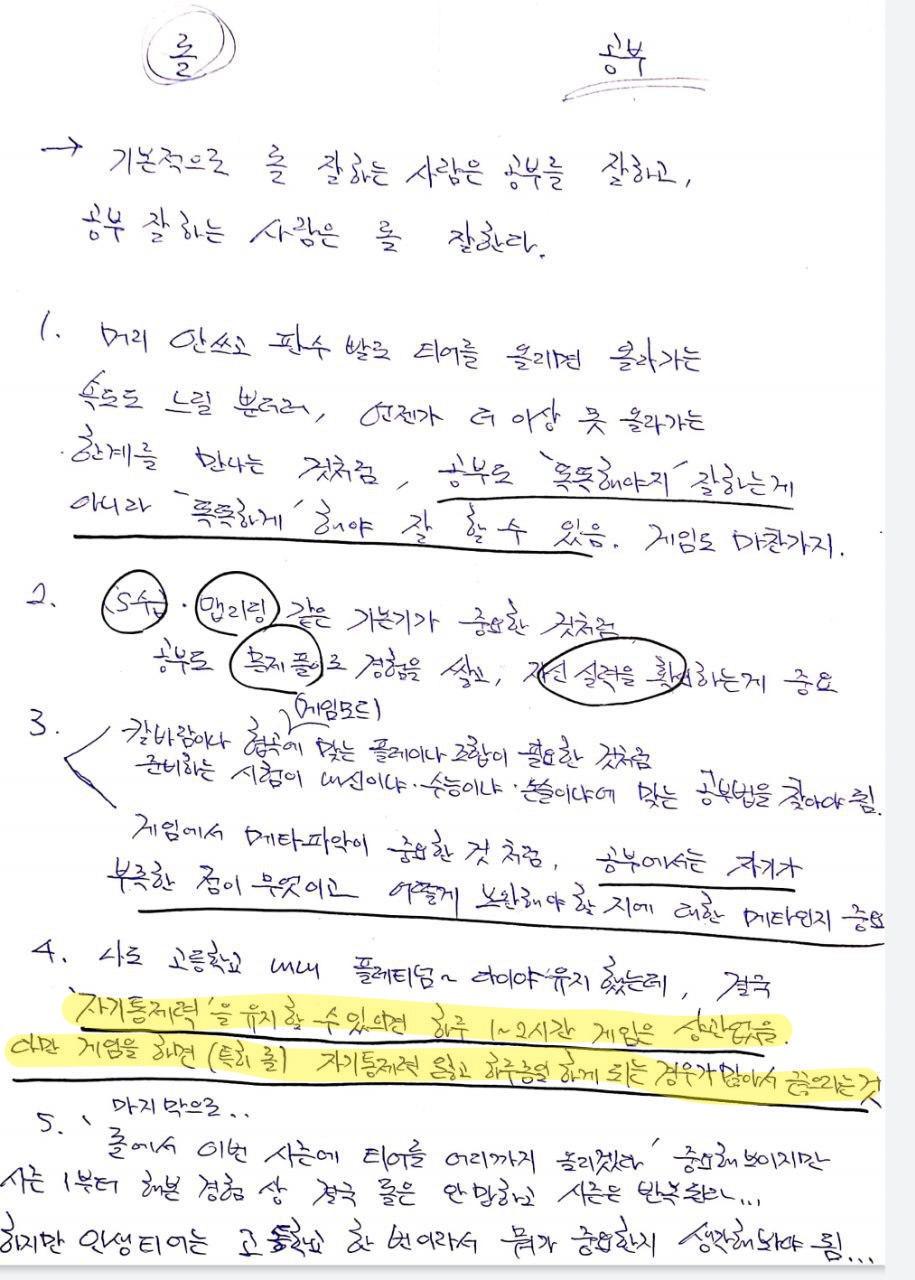 롤 공부
→ 기본적으로 롤 잘하는 사람은 공부를 잘하고,
공부 잘하는 사람은 롤 잘한다.
1. 머리 안쓰고 판수 빨로 티어를 올리면 올라가는
속도도 느릴 뿐더러, 언젠가 더 이상 못 올라가는
한계를 만나는 것처럼, 공부도 '똑똑해야지' 잘하는게
아니라 '똑똑하게' 해야 잘 할 수 있음. 게임도 마찬가지.
2. CS수급 · 맵리딩 같은 기본기가 중요한 것처럼
공부도 문제 풀이로 경험을 쌓고, 자신 실력을 확인하는게 중요
(게임모드)
3. 칼바람이나 협곡에 맞는 플레이나 조합이 필요한 것처럼
준비하는 시험이 내신이냐 · 수능이냐 · 논술이냐에 맞는 공부법을 찾아야 됨.
게임에서 메타파악이 중요한 것 처럼, 공부에서는 자기가
부족한 점이 무엇이고 어떻게 보완해야 할 지에 대한 메타인지 중요
4. 나도 고등학교 내내 플레티넘~ 다이야 유지 했는데, 결국
'자기통제력'을 유지할 수 있으면 하루 1~2시간 게임은 상관없음.
다만 게임을 하면 (특히 롤) 자기통제력 잃고 하루종일 하게 되는 경우가 많아서 끊으라는 것
5. 마지막으로..
'롤에서 이번 시즌에 티어를 어디까지 올리겠다' 중요해 보이지만
시즌 1부터 해본 경험 상 결국 롤은 안 망하고 시즌은 반복된다...
하지만 인생티어는 고등학교 한 번이라서 뭐가 중요한지 생각해봐야 됨...